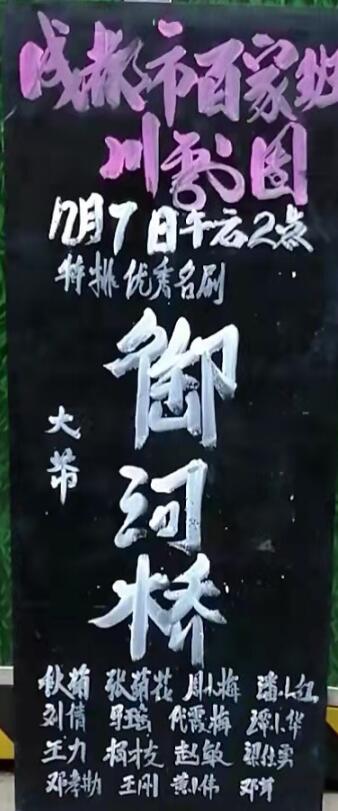 成都市百家班
川剧团
12月7日午后2点
特排优秀名剧
大幕
御河桥
秋菊 张菊花 周小梅 潘小红
刘倩 代霞梅 谭小华
王力 杨枝 赵敏 梁仕云
邓孝勋 王刚 黄小伟 邓军